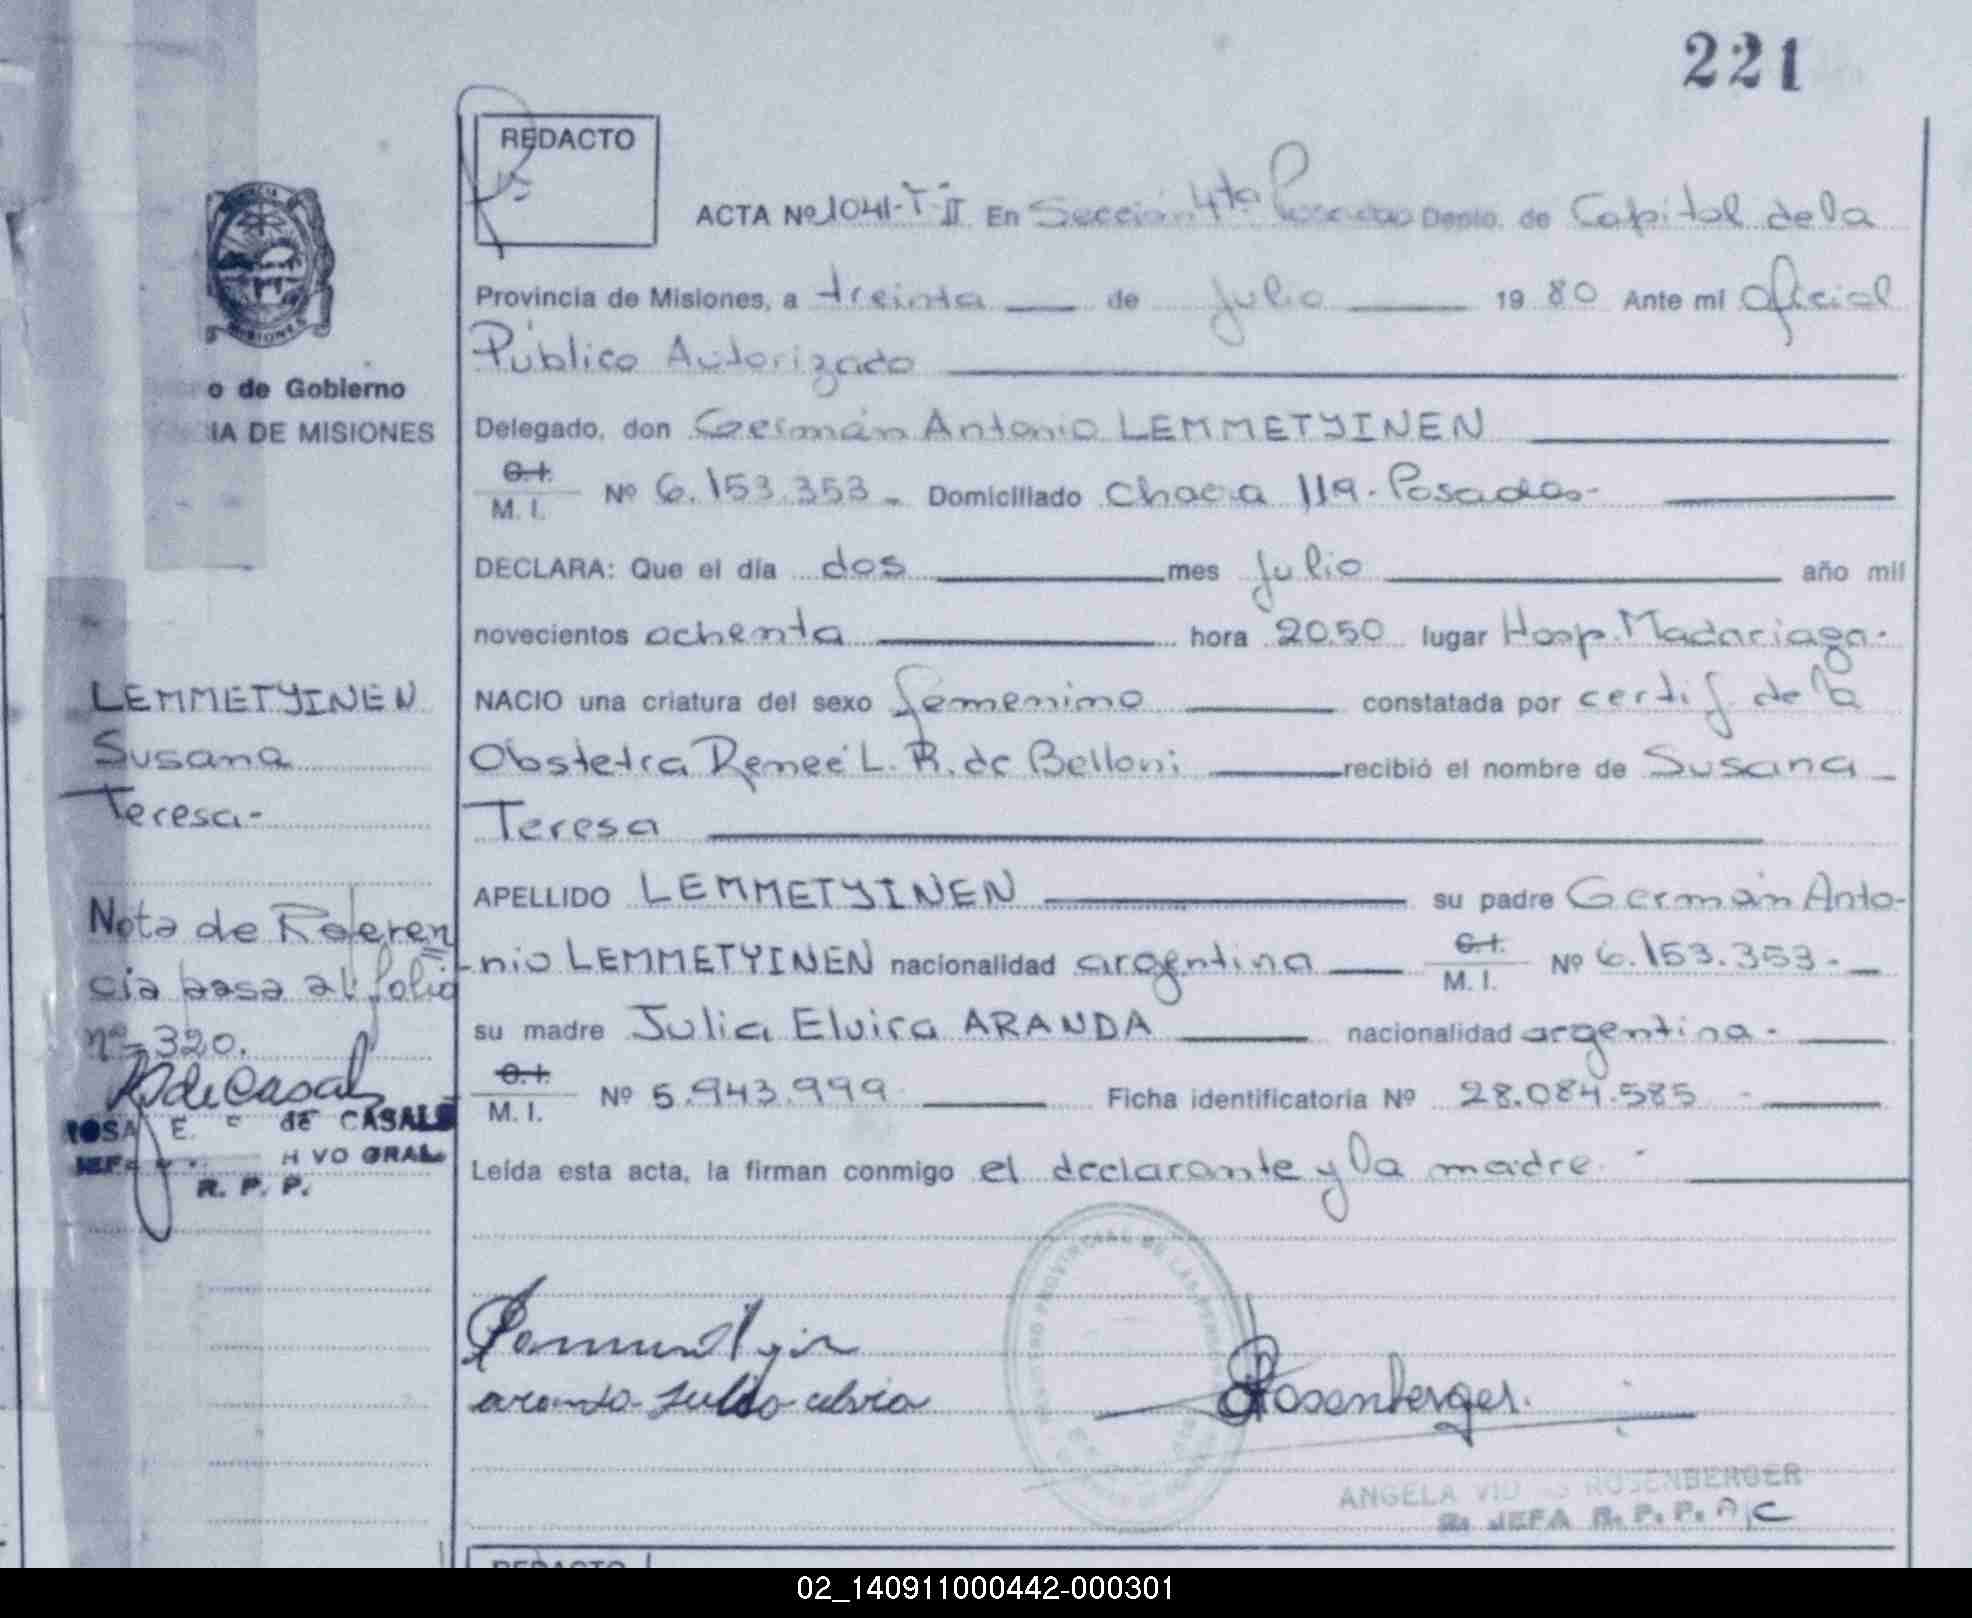 221
REDACTO
ACTA Nº 1041-T-II En Sección 4ta Posadas Depto. de Capital de la
Provincia de Misiones, a treinta de Julio 1980 Ante mi Oficial
Público Autorizado
o de Gobierno
IA DE MISIONES
MISIONES
Delegado, don Germán Antonio LEMMETYINEN
C.I.
M. I. Nº 6.153.353. Domiciliado Chacra 119. Posadas-
DECLARA: Que el día dos mes Julio año mil
novecientos ochenta hora 20.50 lugar Hosp. Madariaga.
NACIO una criatura del sexo femenino constatada por certif. de la
Obstetra Reneé L. R. de Belloni recibió el nombre de Susana
Teresa
APELLIDO LEMMETYINEN su padre Germán Anto-
nio LEMMETYINEN nacionalidad argentina C.I. M. I. Nº 6.153.353.
su madre Julia Elvira ARANDA nacionalidad argentina.
C.I.
M. I. Nº 5.943.999 Ficha identificatoria Nº 28.084.585
Leída esta acta, la firman conmigo el declarante y la madre.
LEMMETYINEN
Susana
Teresa-
Nota de Referen
cia pasa al folio
nº 320.
RdeCasals
ROSA E. de CASALS
R. P. P.
Rosenberger.
ANGELA ROSENBERGER
JEFA R. P. P. A/C
REDACTO
02_140911000442-000301